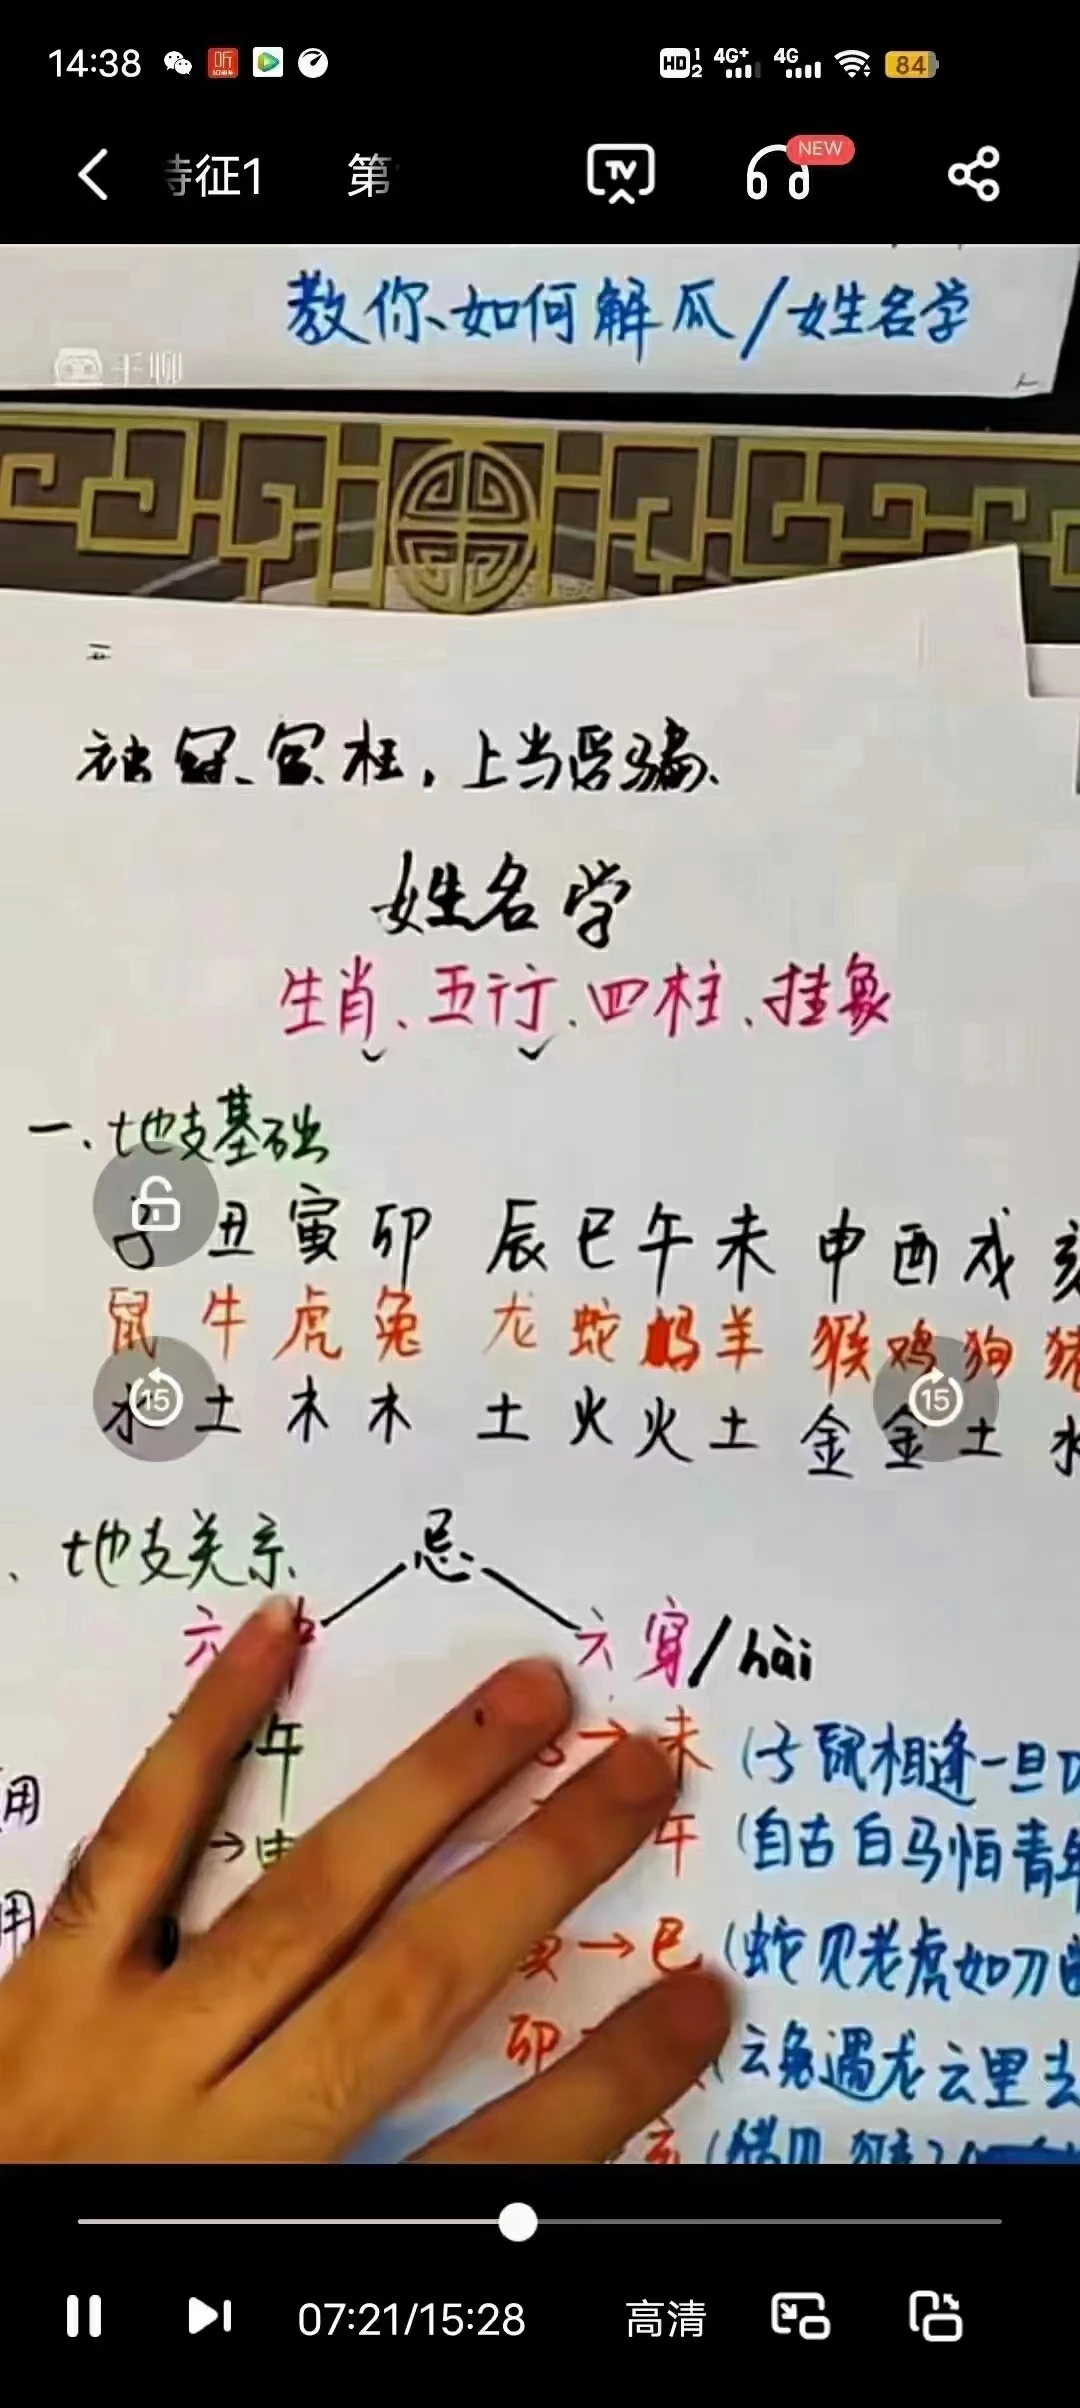 14:38 HD 1 2 4G+ 4G 84
特征1 第 TV NEW
教你如何解瓜/姓名学
二
上当受骗、
姓名学
生肖、五行、四柱、挂象
一、地支基础
子 丑 寅 卯 辰 巳 午 未 申 酉 戌 亥
鼠 牛 虎 兔 龙 蛇 鸡 羊 猴 鸡 狗 猪
水 土 木 木 土 火 火 土 金 金 土 水
15 15
、地支关系 忌
六 六穿/hài
午 → 未 (子鼠相逢一旦
用 → 申 午 (自古白马怕青牛
用 寅 → 巳 (蛇见老虎如刀
卯 (云兔遇龙云里去
亥 (猪见猴
07:21/15:28 高清